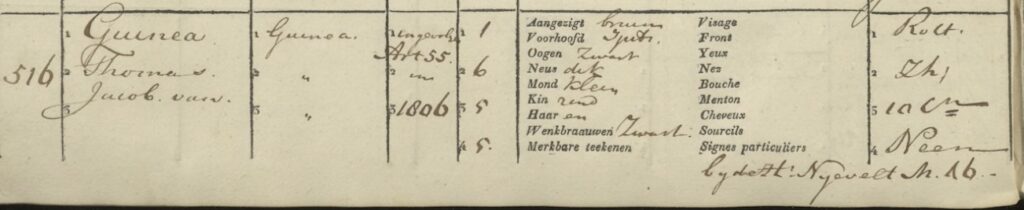 516
1 Guinea
2 Thomas.
3 Jacob. van.
1 Guinea.
2 "
3 "
1
Art 55.
2 en
3 1806
1 1
2 6
3 5
4 5.
Aangezigt bruin Visage
Voorhoofd Front
Oogen Zwart Yeux
Neus dik Nez
Mond klein Bouche
Kin rond Menton
Haar en Cheveux
Wenkbraauwen Zwart. Sourcils
Merkbare teekenen Signes particuliers
1 Rott.
2
3
4 Neen
Nyevelt